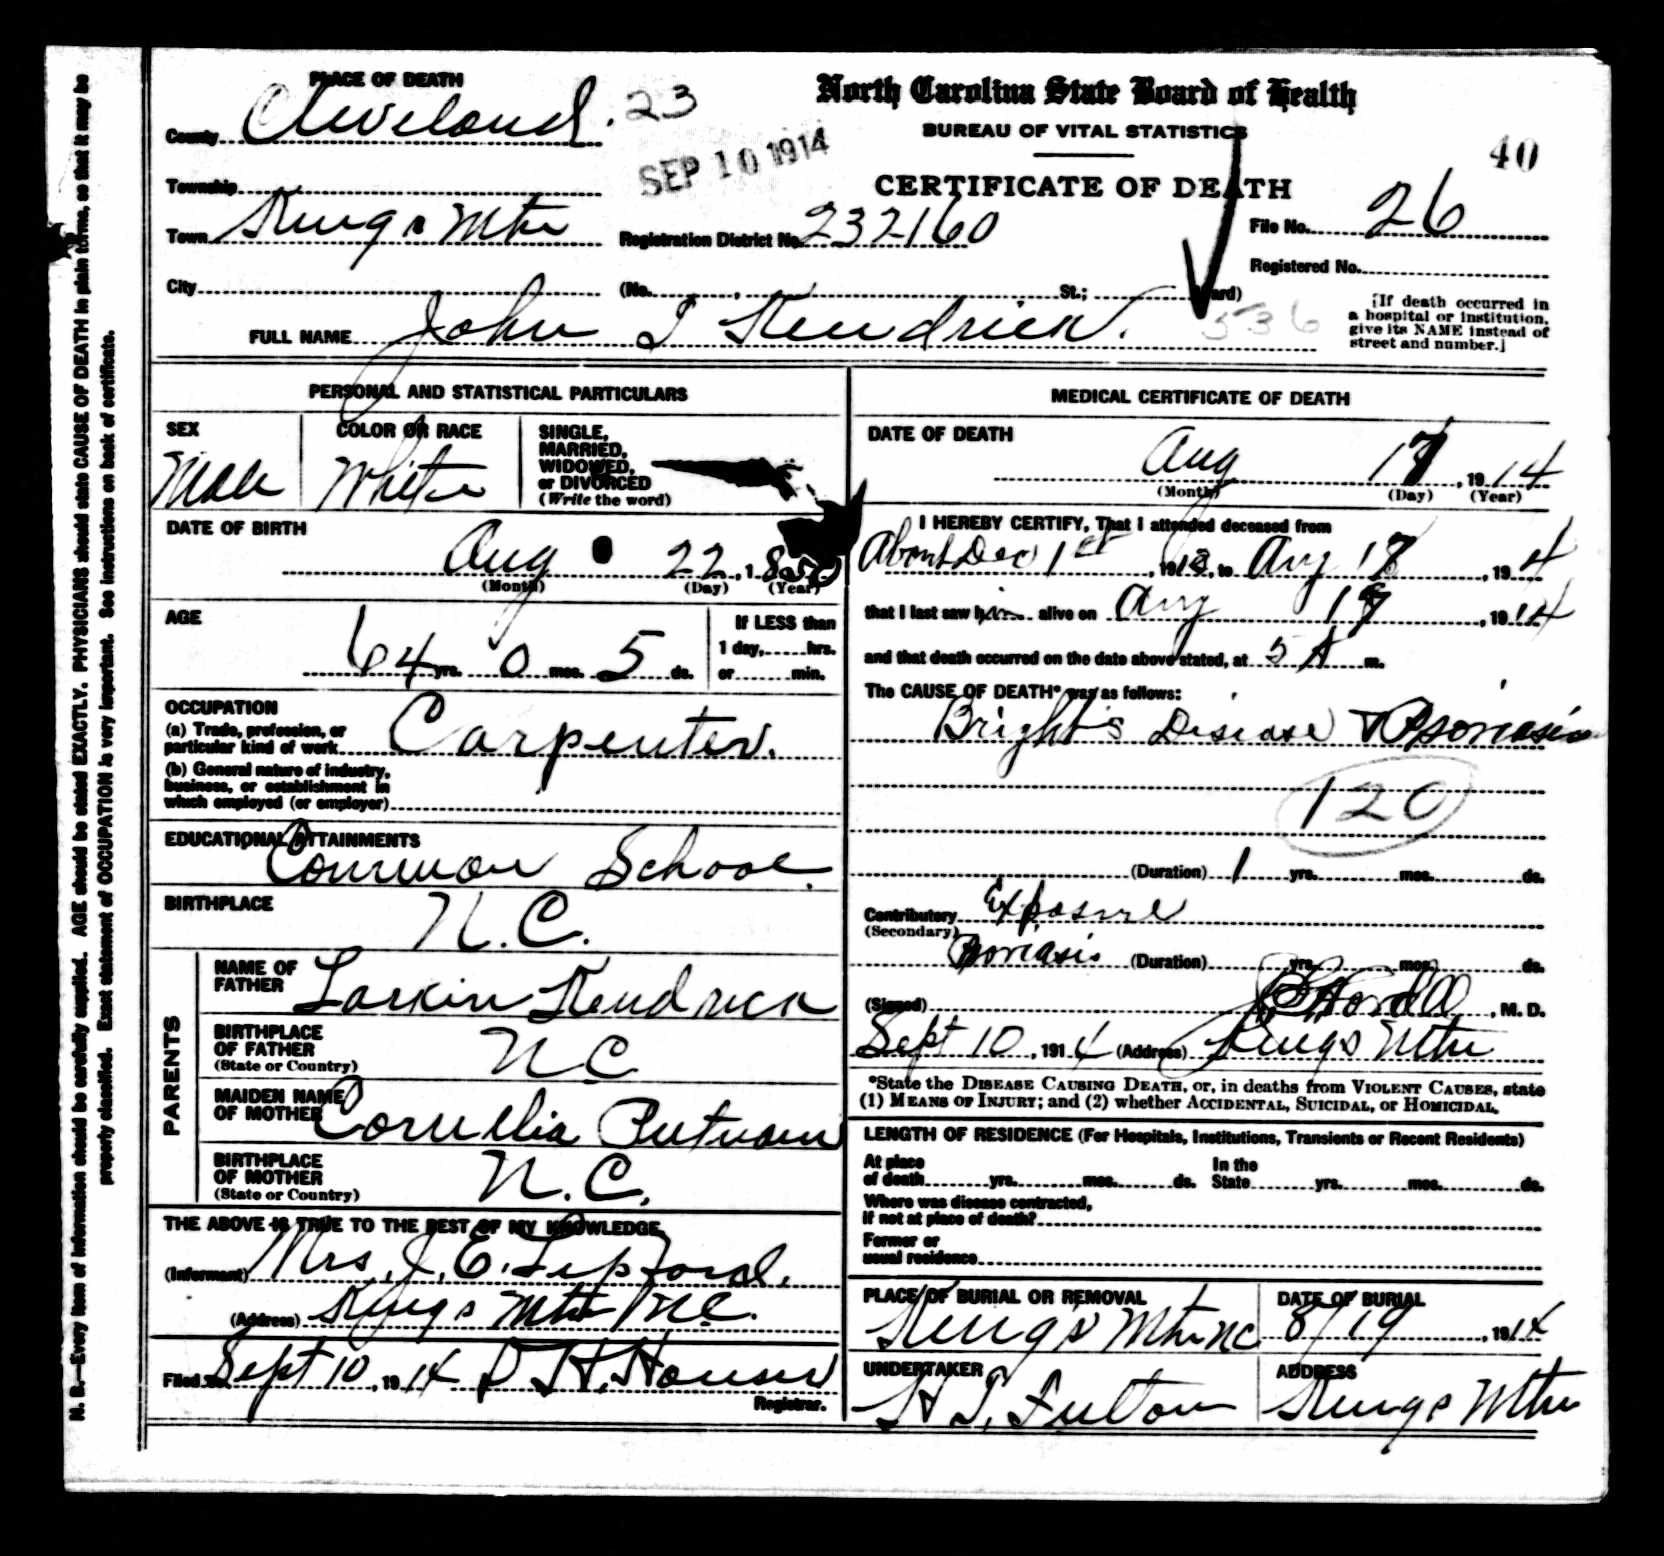 PLACE OF DEATH
County Cleveland. 23
Township
Town Kings Mtn
City
SEP 10 1914
North Carolina State Board of Health
BUREAU OF VITAL STATISTICS
CERTIFICATE OF DEATH
40
Registration District No. 232160
File No. 26
Registered No.
(No. , St.; Ward)
FULL NAME John T Kendrick. 536
[If death occurred in
a hospital or institution,
give its NAME instead of
street and number.]
PERSONAL AND STATISTICAL PARTICULARS
SEX
Male
COLOR OR RACE
White
SINGLE,
MARRIED,
WIDOWED,
or DIVORCED
(Write the word)
DATE OF BIRTH
Aug 22, 1850
(Month) (Day) (Year)
AGE
64 yrs. 0 mos. 5 ds.
If LESS than
1 day, hrs.
or min.
OCCUPATION
(a) Trade, profession, or
particular kind of work Carpenter.
(b) General nature of industry,
business, or establishment in
which employed (or employer)
EDUCATIONAL ATTAINMENTS
Common School.
BIRTHPLACE
N.C.
PARENTS
NAME OF
FATHER Larkin Kendrick
BIRTHPLACE
OF FATHER
(State or Country) N C
MAIDEN NAME
OF MOTHER Cornellia Putnam
BIRTHPLACE
OF MOTHER
(State or Country) N.C.
THE ABOVE IS TRUE TO THE BEST OF MY KNOWLEDGE
(Informant) Mrs. J. E. Lipford.
(Address) Kings Mtn N.C.
Filed Sept 10, 1914 H. Houser
Registrar.
MEDICAL CERTIFICATE OF DEATH
DATE OF DEATH
Aug 17, 1914
(Month) (Day) (Year)
I HEREBY CERTIFY, That I attended deceased from
About Dec 1st, 1913, to Aug 17, 1914
that I last saw him alive on Aug 17, 1914
and that death occurred on the date above stated, at 5 A m.
The CAUSE OF DEATH* was as follows:
Bright's Disease & Psoriasis
120
(Duration) 1 yrs. mos. ds.
Contributory Exposure
(Secondary)
Psoriasis (Duration) yrs. mos. ds.
(Signed) Hord, M. D.
Sept 10, 1914 (Address) Kings Mtn
*State the DISEASE CAUSING DEATH, or, in deaths from VIOLENT CAUSES, state
(1) MEANS OF INJURY; and (2) whether ACCIDENTAL, SUICIDAL, or HOMICIDAL.
LENGTH OF RESIDENCE (For Hospitals, Institutions, Transients or Recent Residents)
At place
of death yrs. mos. ds.
In the
State yrs. mos. ds.
Where was disease contracted,
if not at place of death?
Former or
usual residence
PLACE OF BURIAL OR REMOVAL
Kings Mtn NC
DATE OF BURIAL
8/19, 1914
UNDERTAKER
H T. Fulton
ADDRESS
Kings Mtn
N. B.—Every item of information should be carefully supplied. AGE should be stated EXACTLY. PHYSICIANS should state CAUSE OF DEATH in plain terms, so that it may be
properly classified. Exact statement of OCCUPATION is very important. See instructions on back of certificate.